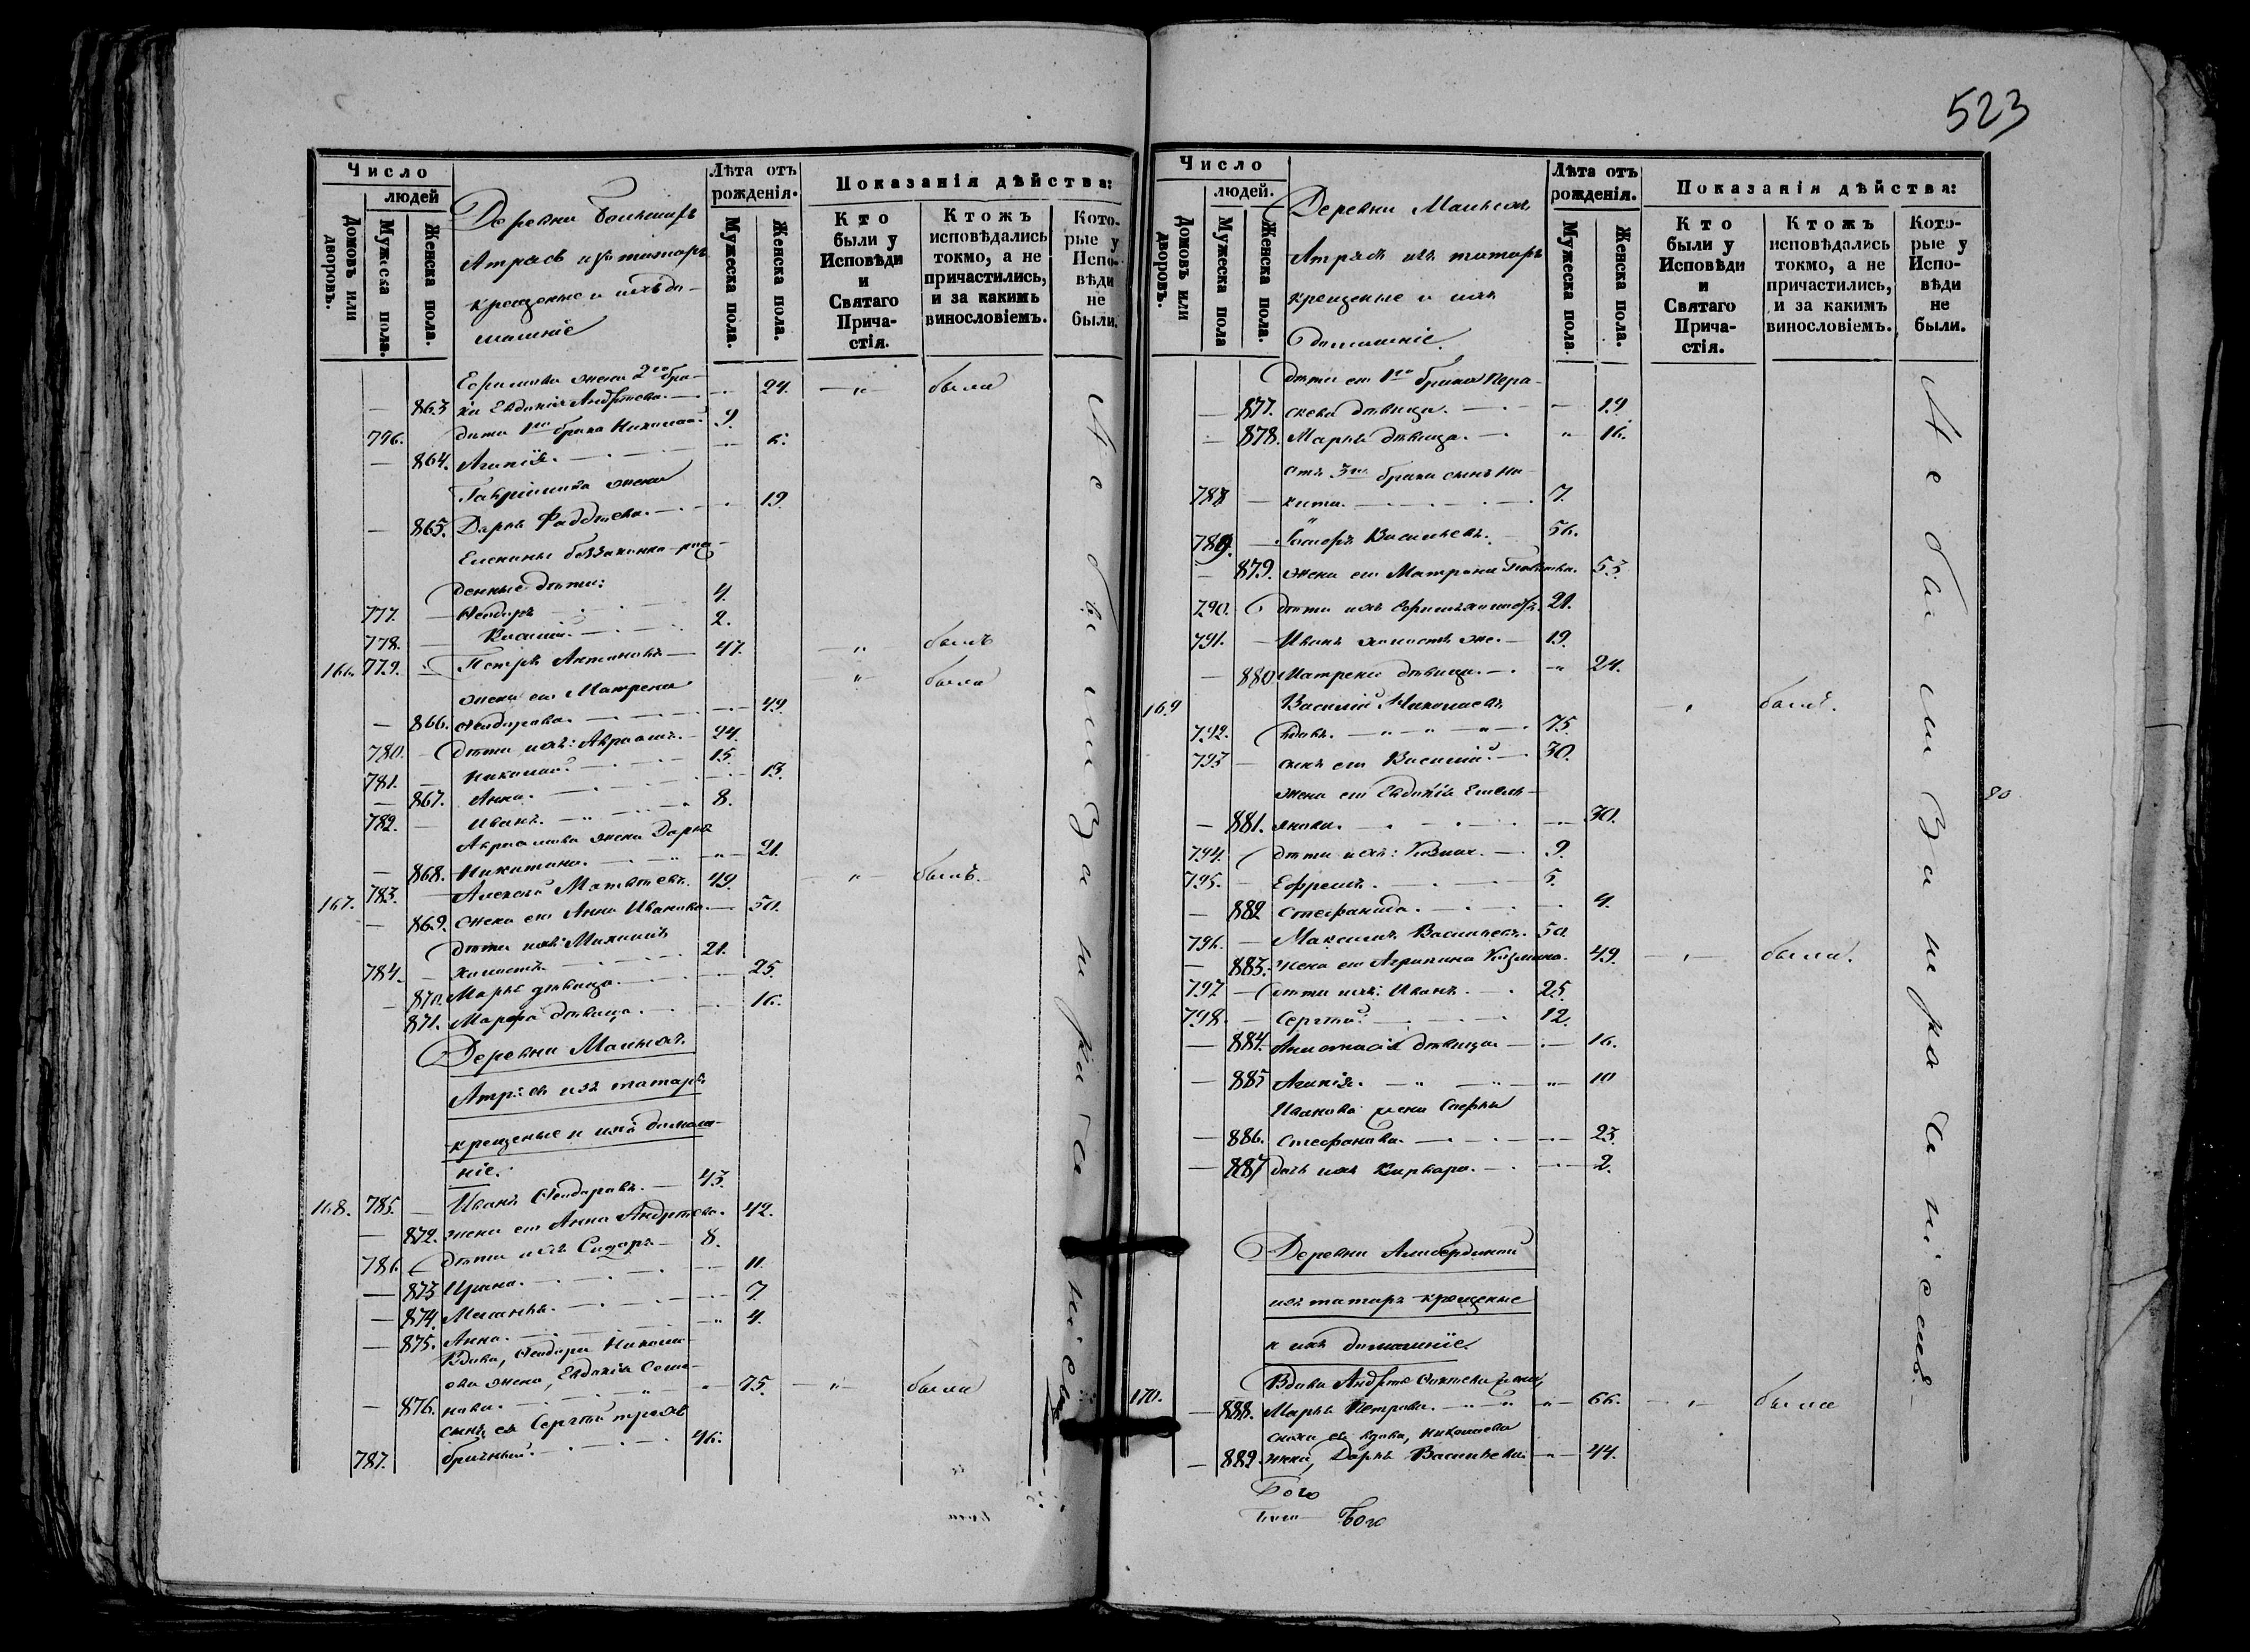 523
Число
людей
Домовъ или дворовъ.
Мужеска пола.
Женска пола.
Деревни
Атрясъ изъ татаръ
крещеные и ихъ до-
машніе
Лѣта отъ
рожденія.
Мужеска пола.
Женска пола.
Показанія дѣйства:
Кто
были у
Исповѣди
и
Святаго
Прича-
стія.
Ктожъ
исповѣдались
токмо, а не
причастились,
и за какимъ
винословіемъ.
Кото-
рые у
Испо-
вѣди
не
были.
жена 2го бра-
— 863 ка Евдокія Андрѣева. — 24. — „ — была
776. дѣти 1го брака Николай. 9.
— 864. Агапія. — 6.
Гавріилова жена
— 865. Дарья Фаддѣева. — 19.
Еленины беззаконно-рож-
денные дѣти:
777. — Ѳеодоръ — 4.
778. — 2.
166. 779. — Петръ Антоновъ — 47. „ былъ
жена его Матрена
— 866. Ѳеодорова. — 49. „ была
780. — дѣти ихъ: Авраамъ. — 24.
781. — Николай. — 15.
— 867. Анна. — 13.
782. — Иванъ. — 8.
Авраамова жена Дарья
— 868. Никитина. — 21.
167. 783. — Алексѣй Матвѣевъ. 49. „ былъ.
— 869. жена его Анна Иванова. — 50.
дѣти ихъ: Михаилъ
784. — холостъ. — 21.
— 870. Марья дѣвица. — 25.
871. Марфа дѣвица. — 16.
Деревни Малыхъ
Атрясъ изъ татаръ
крещеные и ихъ домаш-
ніе.
168. 785. — Иванъ Ѳеодоровъ. — 43.
— 872. жена его Анна Андрѣева. 42.
786. дѣти ихъ Сидоръ — 8.
— 873 Ирина. — 11.
— 874. Меланья. — 7.
— 875. Анна. — 4.
Вдова, Ѳеодора Никола-
ева жена, Евдокія Семе-
— 876. нова. — 75. — „ — была
сынъ ея Сергѣй трех-
787. брачный. — 46.
Не бы ли за нераченіемъ
Число
людей.
Домовъ или дворовъ.
Мужеска пола
Женска пола.
Деревни Малыхъ
Атрясъ изъ татаръ
крещеные и ихъ
домашніе.
Лѣта отъ
рожденія.
Мужеска пола.
Женска пола.
Показанія дѣйства:
Кто
были у
Исповѣди
и
Святаго
Прича-
стія.
Ктожъ
исповѣдались
токмо, а не
причастились,
и за какимъ
винословіемъ.
Кото-
рые у
Испо-
вѣди
не
были.
дѣти отъ 1го брака Пара-
— 877. скева дѣвица. — 19.
— 878. Марья дѣвица. — „ 16.
отъ 3го брака сынъ Ни-
788 — кита. — 7.
789. — Васильевъ. 56.
— 879. жена его Матрона 53.
790. дѣти ихъ 21.
791. — Иванъ холостъ же. — 19.
— 880 Матрена дѣвица. — „ 24.
169 Василій Николаевъ — „ былъ.
792. вдовъ. — 75.
793 — сынъ его Василій. — 30.
жена его Евдокія Емель-
— 881. янова. — 30.
794. дѣти ихъ: Козма. — 9.
795. — Ефремъ. — 5.
— 882 Стефанида. — 4.
796. — Максимъ Васильевъ. 50.
— 883. жена его Агрипина Козмина. 49. — „ — была.
797 — дѣти ихъ: Иванъ. — 25.
798. — Сергѣй. — 12.
— 884. Анастасія дѣвица — 16.
— 885 Агапія. — „ — „ — 10
Иванова жена Софья
— 886. Стефанова. — 23.
— 887 дочь ихъ Варвара. — 2.
Деревни Алибердиной
изъ татаръ крещеные
и ихъ домашніе.
170. Вдова жена,
— 888. Марья Петрова. — „ — 66. — „ — была
сноха ея вдова, Николаева
— 889. жена, Дарья Васильева. — 44.
Бого
Бого
Не бы ли за нераченіемъ.
80